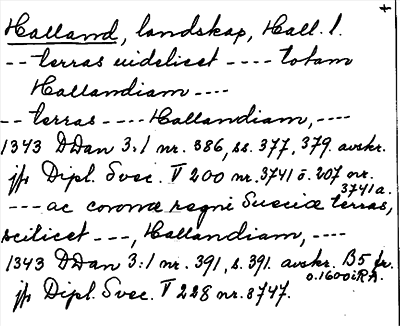 Halland, landskap, Hall. l. +
-- terras uidelicet ---- totam
Hallandiam ----
-- terras ---- Hallandiam, ----
1343 DDan 3:1 nr. 386, ss. 377, 379. avskr.
jfr Dipl. Svec. V 200 nr. 3741 o. 207 nr.
3741a.
--- ac coronæ regni Sueciæ terras,
scilicet ---, Hallandiam, ----
1343 DDan 3:1 nr. 391, s. 391. avskr. B5 fr.
o. 1600 i RA.
jfr Dipl. Svec. V 228 nr. 3747.